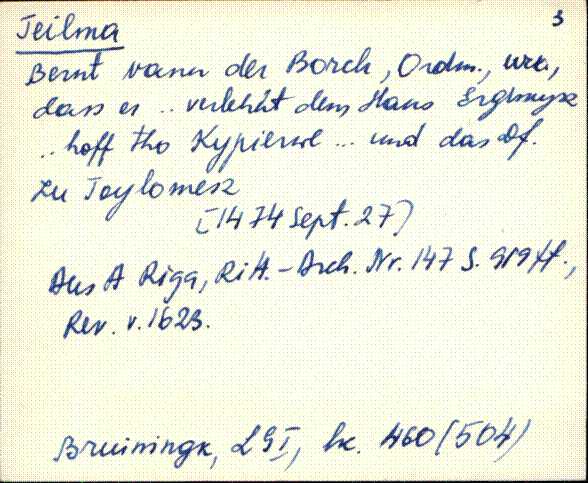 3
Teilma
Bernt vann der Borch, Ordm., urk.,
dass er .. verlehnt dem Hans
.. hoff tho Kypierwe ... und das Df.
zu Toylomesz
[1474 Sept. 27]
Aus A Riga, Ritt.-Arch. Nr. 147 S. 919 ff.,
Rev. v. 1623.
Bruiningk, LGI, lk. 460 (504)